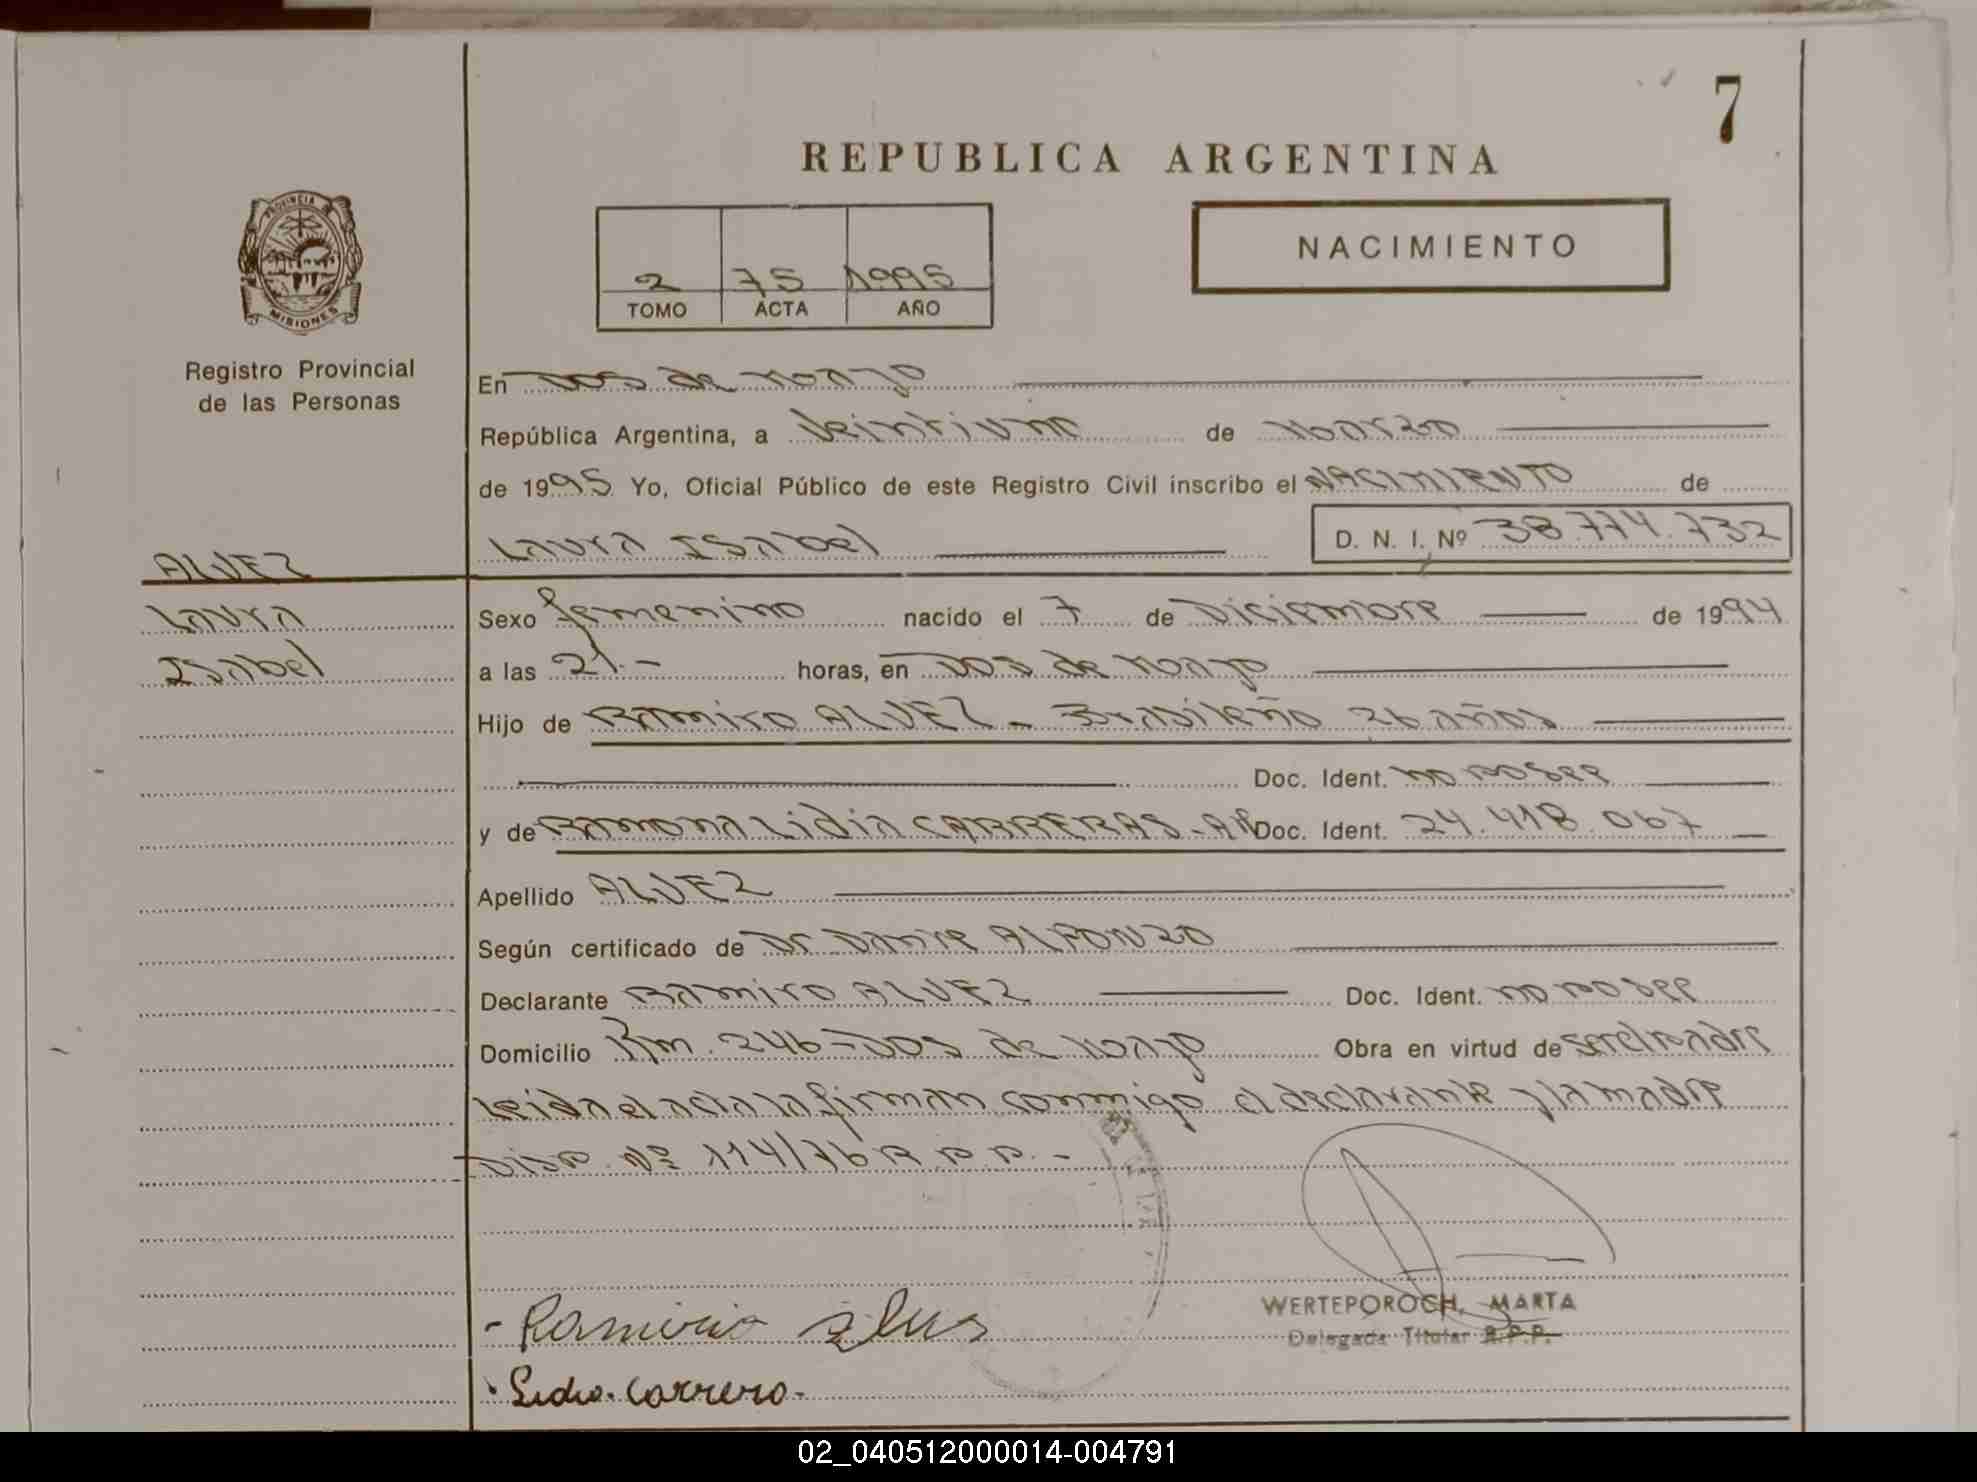 7
REPUBLICA ARGENTINA
PROVINCIA DE
MISIONES
Registro Provincial
de las Personas
2 75 1995
TOMO ACTA AÑO
NACIMIENTO
En Dos de Mayo
República Argentina, a Veintiuno de Marzo
de 1995 Yo, Oficial Público de este Registro Civil inscribo el NACIMIENTO de
Laura Isabel D. N. I. Nº 38.774.732
ALVEZ
Laura
Isabel
Sexo femenino nacido el 7 de Diciembre de 1994
a las 21.- horas, en Dos de Mayo
Hijo de Ramiro ALVEZ - Brasileño 26 años
Doc. Ident. no posee
y de Ramona Lidia CARRERAS - AR Doc. Ident. 24.418.067
Apellido ALVEZ
Según certificado de Dr. Dante ALFONZO
Declarante Ramiro ALVEZ Doc. Ident. no posee
Domicilio Km. 246 - Dos de Mayo Obra en virtud de ser el padre
Leida el acta la firman conmigo el declarante y la madre
Disp. Nº 114/76 R.P.P. -
WERTEPOROCH, MARTA
Delegada Titular R.P.P.
- Ramirio
Lidia Carrero-
02_040512000014-004791